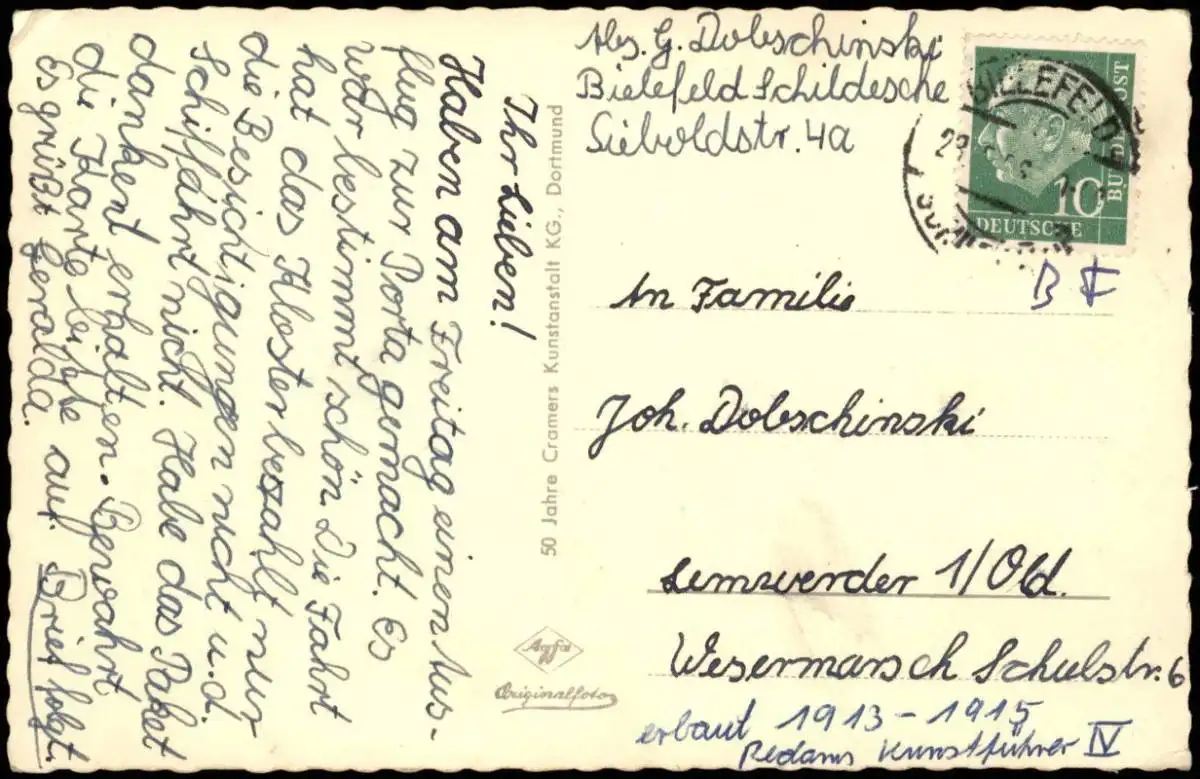 Abs. G. Dobschinski
Bielefeld Schildesche
Sieboldstr. 4a
BIELEFELD
29
10
DEUTSCHE
BUNDESPOST
B F
Ihr Lieben!
Haben am Freitag einen Aus-
flug zur Porta gemacht. Es
war bestimmt schön. Die Fahrt
hat das Kloster bezahlt nur
die Besichtigungen nicht u. d.
Schiffahrt nicht. Habe das Paket
dankent erhalten. Bewahrt
die Karte bitte auf. Brief folgt.
Es grüßt Geralda.
50 Jahre Cramers Kunstanstalt KG., Dortmund
Agfa
Originalfoto
An Familie
Joh. Dobschinski
Lemwerder 1/Old.
Wesermarsch Schulstr. 6
erbaut 1913-1915
Redams Kunstführer IV